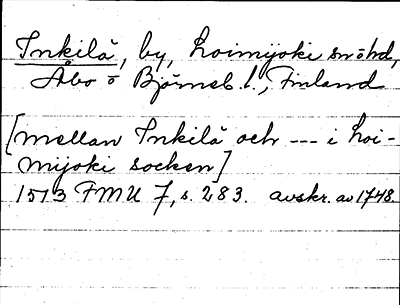 Inkilä, by, Loimijoki snöhd,
Åbo o Björneb. l., Finland
[mellan Inkilä och --- i Loi-
mijoki socken]
1513 FMU 7, s. 283. avskr. av 1748.